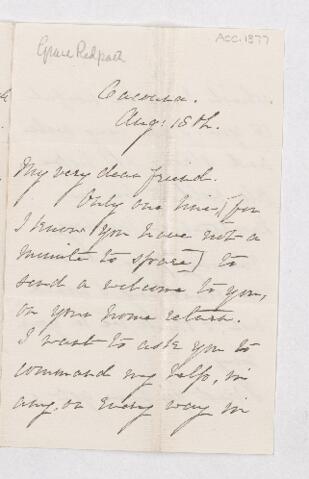 Grace Redpath
ACC.1877
Cacouna.
Aug: 18th.
My very dear friend.
Only one line [for
I know you have not a
minute to spare] to
send a welcome to you,
on your home return.
I want to ask you to
command my help, in
any, or every way in